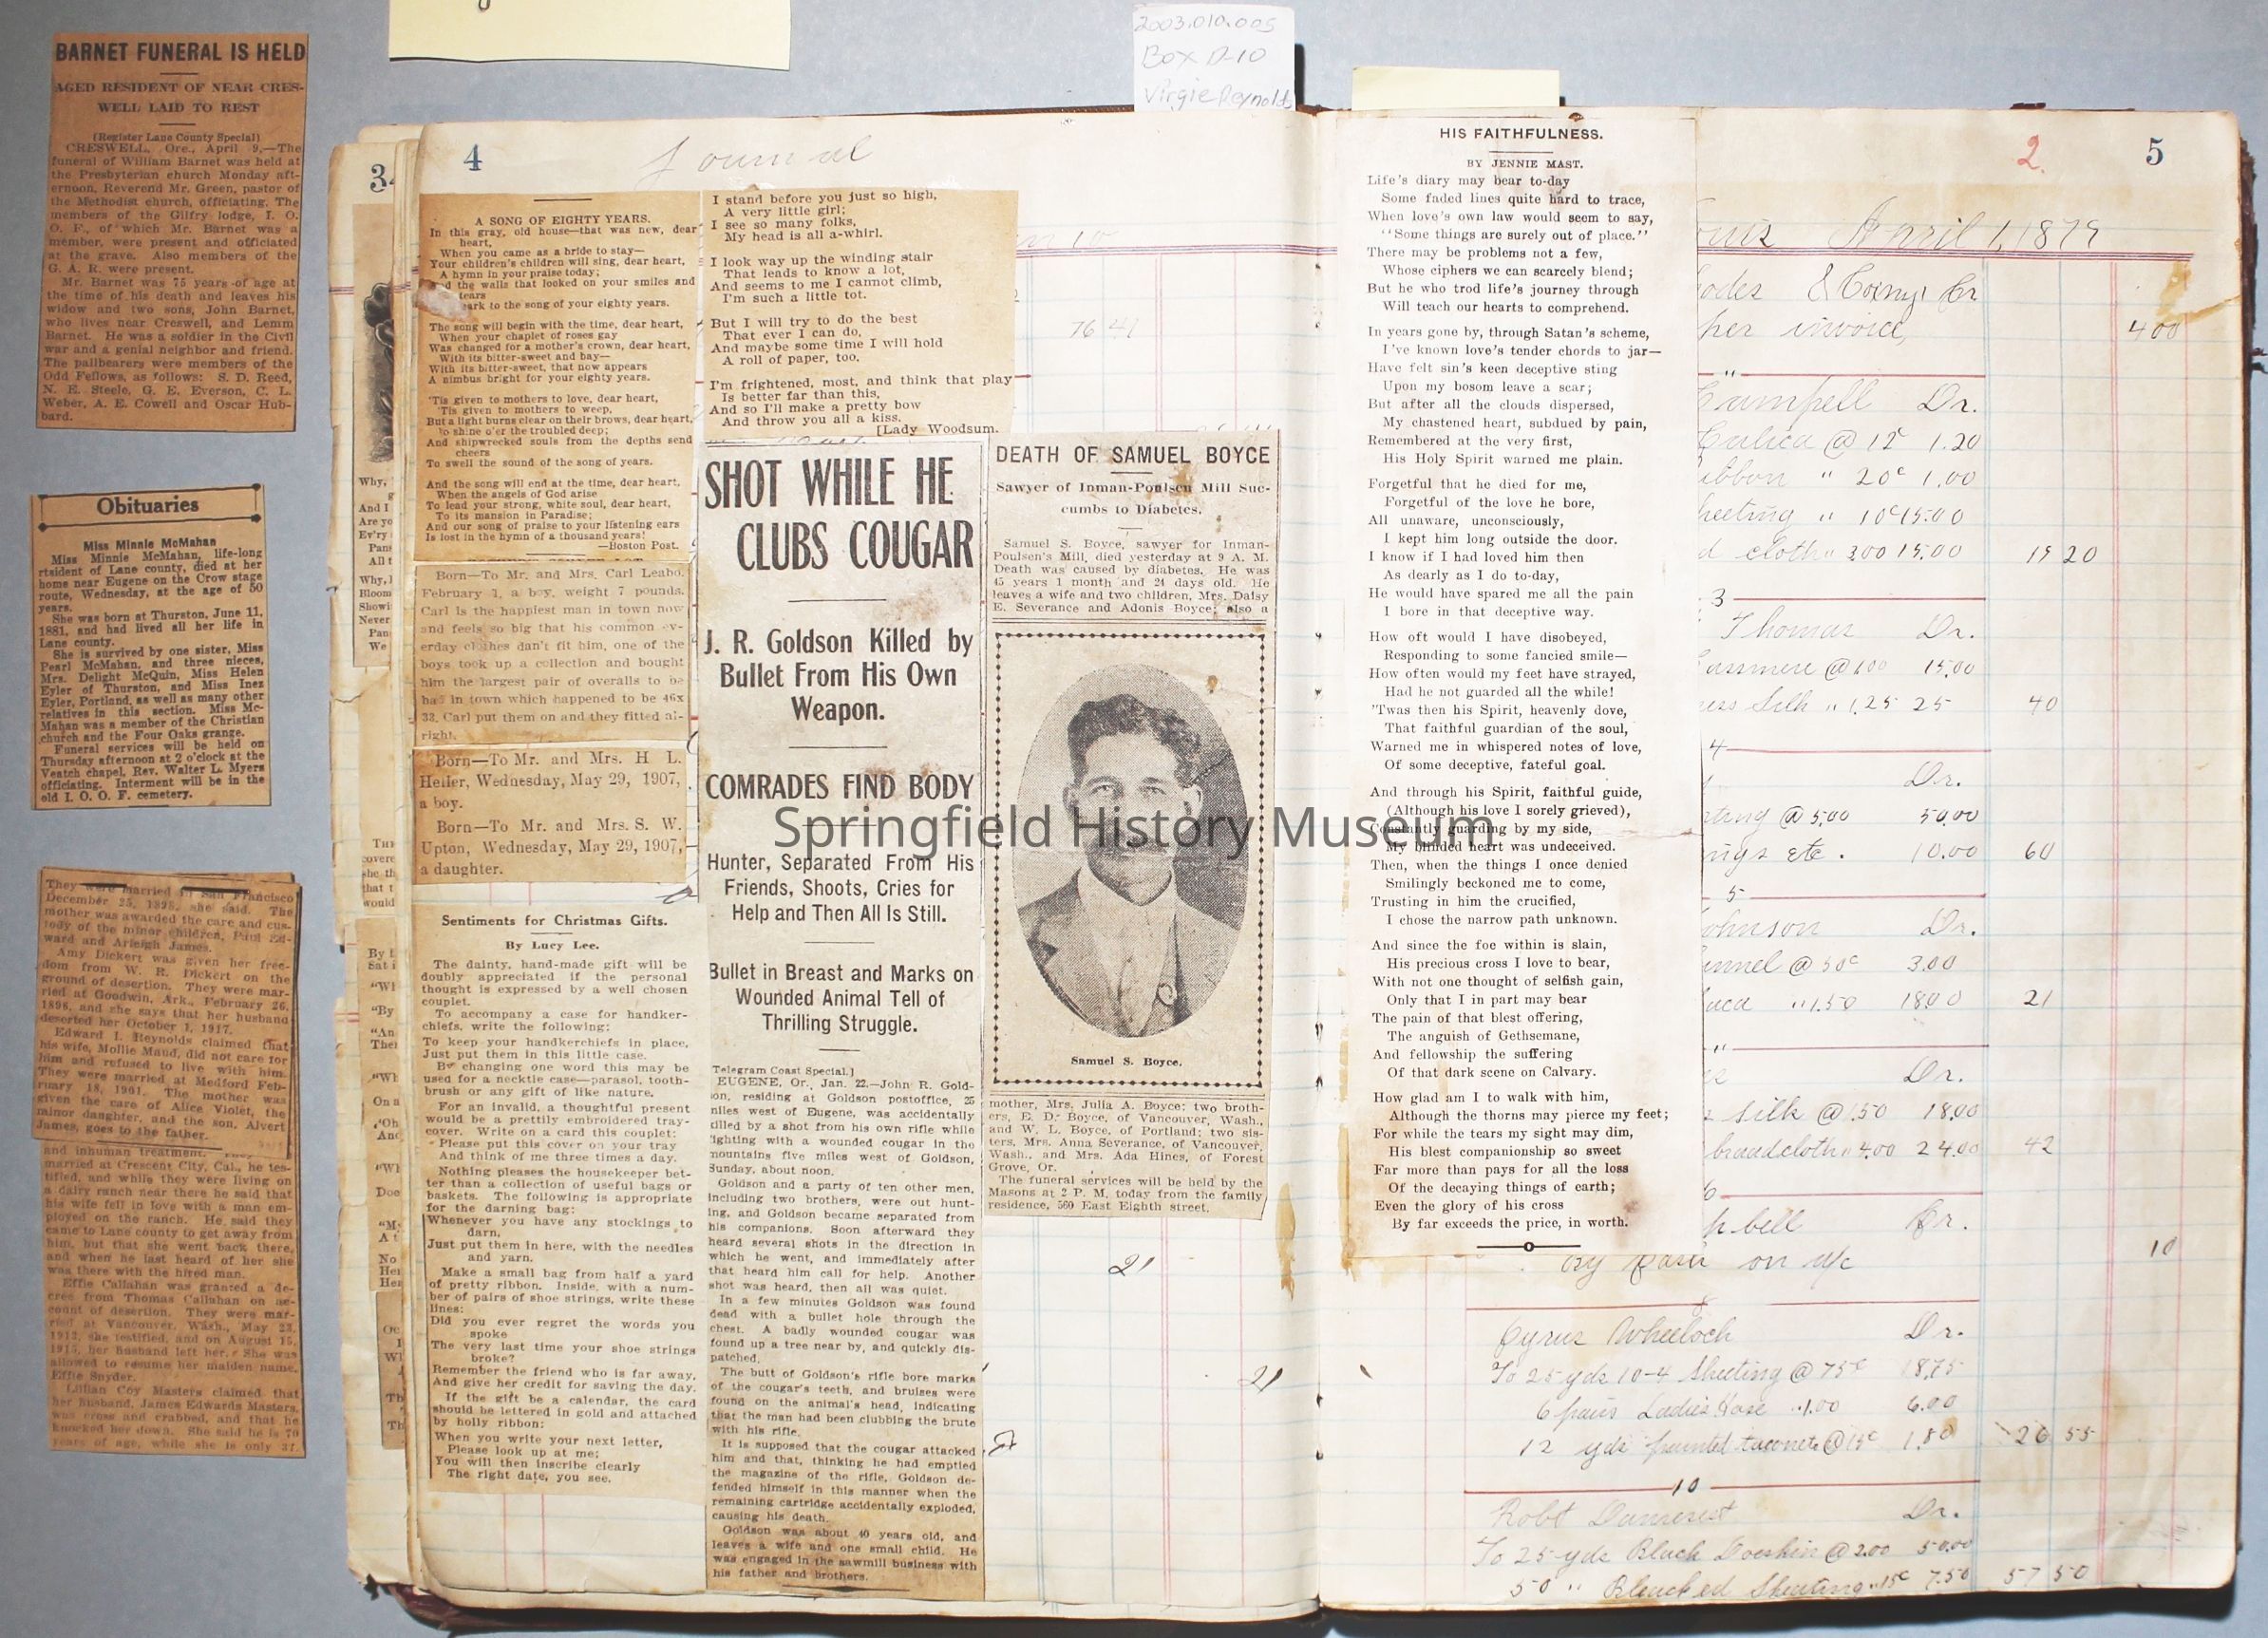 BARNET FUNERAL IS HELD
AGED RESIDENT OF NEAR CRES-
WELL LAID TO REST
(Register Lane County Special)
CRESWELL, Ore., April 9.—The
funeral of William Barnet was held at
the Presbyterian church Monday aft-
ernoon, Reverend Mr. Green, pastor of
the Methodist church, officiating. The
members of the Gilfry lodge, I. O.
O. F., of which Mr. Barnet was a
member, were present and officiated
at the grave. Also members of the
G. A. R. were present.
Mr. Barnet was 75 years of age at
the time of his death and leaves his
widow and two sons, John Barnet,
who lives near Creswell, and Lemm
Barnet. He was a soldier in the Civil
war and a genial neighbor and friend.
The pallbearers were members of the
Odd Fellows, as follows: S. D. Reed,
N. E. Steele, G. E. Everson, C. L.
Weber, A. E. Cowell and Oscar Hub-
bard.
Obituaries
Miss Minnie McMahan
Miss Minnie McMahan, life-long
rtsident of Lane county, died at her
home near Eugene on the Crow stage
route, Wednesday, at the age of 50
years.
She was born at Thurston, June 11,
1881, and had lived all her life in
Lane county.
She is survived by one sister, Miss
Pearl McMahan, and three nieces,
Mrs. Delight McQuin, Miss Helen
Eyler of Thurston, and Miss Inez
Eyler, Portland, as well as many other
relatives in this section. Miss Mc-
Mahan was a member of the Christian
church and the Four Oaks grange.
Funeral services will be held on
Thursday afternoon at 2 o'clock at the
Veatch chapel, Rev. Walter L. Myers
officiating. Interment will be in the
old I. O. O. F. cemetery.
They were married in San Francisco
December 25, 1895, she said. The
mother was awarded the care and cus-
tody of the minor children, Paul Ed-
ward and Arleigh James.
Amy Dickert was given her free-
dom from W. R. Dickert on the
ground of desertion. They were mar-
ried at Goodwin, Ark., February 26,
1896, and she says that her husband
deserted her October 1, 1917.
Edward I. Reynolds claimed that
his wife, Mollie Maud, did not care for
him and refused to live with him.
They were married at Medford Feb-
ruary 18, 1901. The mother was
given the care of Alice Violet, the
minor daughter, and the son, Alvert
James, goes to the father.
and inhuman treatment. They
married at Crescent City, Cal., he tes-
tified, and while they were living on
a dairy ranch near there he said that
his wife fell in love with a man em-
ployed on the ranch. He said they
came to Lane county to get away from
him, but that she went back there,
and when he last heard of her she
was there with the hired man.
Effie Callahan was granted a de-
cree from Thomas Callahan on ac-
count of desertion. They were mar-
ried at Vancouver, Wash., May 23,
1912, she testified, and on August 15,
1915, her husband left her. She was
allowed to resume her maiden name,
Effie Snyder.
Lillian Coy Masters claimed that
her husband, James Edwards Masters,
was cross and crabbed, and that he
knocked her down. She said he is 70
years of age, while she is only 37.
2003.010.005
Box D-10
Virgie Reynolds
3
4
Journal
A SONG OF EIGHTY YEARS.
In this gray, old house—that was new, dear
heart,
When you came as a bride to stay—
Your children's children will sing, dear heart,
A hymn in your praise today;
the walls that looked on your smiles and
tears
ark to the song of your eighty years.
The song will begin with the time, dear heart,
When your chaplet of roses gay
Was changed for a mother's crown, dear heart,
With its bitter-sweet and bay—
With its bitter-sweet, that now appears
A nimbus bright for your eighty years.
'Tis given to mothers to love, dear heart,
'Tis given to mothers to weep,
But a light burns clear on their brows, dear heart,
To shine o'er the troubled deep;
And shipwrecked souls from the depths send
cheers
To swell the sound of the song of years.
And the song will end at the time, dear heart,
When the angels of God arise
To lead your strong, white soul, dear heart,
To its mansion in Paradise;
And our song of praise to your listening ears
Is lost in the hymn of a thousand years!
—Boston Post.
Born—To Mr. and Mrs. Carl Leabo.
February 1, a boy, weight 7 pounds.
Carl is the happiest man in town now
and feels so big that his common ev-
erday clothes dan't fit him, one of the
boys took up a collection and bought
him the largest pair of overalls to be
had in town which happened to be 46x
33. Carl put them on and they fitted al-
right.
Born—To Mr. and Mrs. H L.
Heller, Wednesday, May 29, 1907,
a boy.
Born—To Mr. and Mrs. S. W.
Upton, Wednesday, May 29, 1907,
a daughter.
Sentiments for Christmas Gifts.
By Lucy Lee.
The dainty, hand-made gift will be
doubly appreciated if the personal
thought is expressed by a well chosen
couplet.
To accompany a case for handker-
chiefs, write the following:
To keep your handkerchiefs in place,
Just put them in this little case.
By changing one word this may be
used for a necktie case—parasol, tooth-
brush or any gift of like nature.
For an invalid, a thoughtful present
would be a prettily embroidered tray-
cover. Write on a card this couplet:
Please put this cover on your tray
And think of me three times a day.
Nothing pleases the housekeeper bet-
ter than a collection of useful bags or
baskets. The following is appropriate
for the darning bag:
Whenever you have any stockings to
darn,
Just put them in here, with the needles
and yarn.
Make a small bag from half a yard
of pretty ribbon. Inside, with a num-
ber of pairs of shoe strings, write these
lines:
Did you ever regret the words you
spoke
The very last time your shoe strings
broke?
Remember the friend who is far away,
And give her credit for saving the day.
If the gift be a calendar, the card
should be lettered in gold and attached
by holly ribbon:
When you write your next letter,
Please look up at me;
You will then inscribe clearly
The right date, you see.
I stand before you just so high,
A very little girl;
I see so many folks,
My head is all a-whirl.
I look way up the winding stair
That leads to know a lot,
And seems to me I cannot climb,
I'm such a little tot.
But I will try to do the best
That ever I can do,
And maybe some time I will hold
A roll of paper, too.
I'm frightened, most, and think that play
Is better far than this,
And so I'll make a pretty bow
And throw you all a kiss.
[Lady Woodsum.
SHOT WHILE HE
CLUBS COUGAR
J. R. Goldson Killed by
Bullet From His Own
Weapon.
COMRADES FIND BODY
Hunter, Separated From His
Friends, Shoots, Cries for
Help and Then All Is Still.
Bullet in Breast and Marks on
Wounded Animal Tell of
Thrilling Struggle.
Telegram Coast Special.]
EUGENE, Or., Jan. 22.—John R. Gold-
son, residing at Goldson postoffice, 25
miles west of Eugene, was accidentally
killed by a shot from his own rifle while
fighting with a wounded cougar in the
mountains five miles west of Goldson,
Sunday, about noon.
Goldson and a party of ten other men,
including two brothers, were out hunt-
ing, and Goldson became separated from
his companions. Soon afterward they
heard several shots in the direction in
which he went, and immediately after
that heard him call for help. Another
shot was heard, then all was quiet.
In a few minutes Goldson was found
dead with a bullet hole through the
chest. A badly wounded cougar was
found up a tree near by, and quickly dis-
patched.
The butt of Goldson's rifle bore marks
of the cougar's teeth, and bruises were
found on the animal's head, indicating
that the man had been clubbing the brute
with his rifle.
It is supposed that the cougar attacked
him and that, thinking he had emptied
the magazine of the rifle, Goldson de-
fended himself in this manner when the
remaining cartridge accidentally exploded,
causing his death.
Goldson was about 40 years old, and
leaves a wife and one small child. He
was engaged in the sawmill business with
his father and brothers.
76 41
DEATH OF SAMUEL BOYCE
Sawyer of Inman-Poulsen Mill Suc-
cumbs to Diabetes.
Samuel S. Boyce, sawyer for Inman-
Poulsen's Mill, died yesterday at 9 A. M.
Death was caused by diabetes. He was
45 years 1 month and 24 days old. He
leaves a wife and two children, Mrs. Daisy
E. Severance and Adonis Boyce; also a
Samuel S. Boyce.
mother, Mrs. Julia A. Boyce; two broth-
ers, E. D. Boyce, of Vancouver, Wash.,
and W. L. Boyce, of Portland; two sis-
ters, Mrs. Anna Severance, of Vancouver,
Wash., and Mrs. Ada Hines, of Forest
Grove, Or.
The funeral services will be held by the
Masons at 2 P. M. today from the family
residence, 560 East Eighth street.
21
21
Springfield History Museum
HIS FAITHFULNESS.
BY JENNIE MAST.
Life's diary may bear to-day
Some faded lines quite hard to trace,
When love's own law would seem to say,
"Some things are surely out of place."
There may be problems not a few,
Whose ciphers we can scarcely blend;
But he who trod life's journey through
Will teach our hearts to comprehend.
In years gone by, through Satan's scheme,
I've known love's tender chords to jar—
Have felt sin's keen deceptive sting
Upon my bosom leave a scar;
But after all the clouds dispersed,
My chastened heart, subdued by pain,
Remembered at the very first,
His Holy Spirit warned me plain.
Forgetful that he died for me,
Forgetful of the love he bore,
All unaware, unconsciously,
I kept him long outside the door.
I know if I had loved him then
As dearly as I do to-day,
He would have spared me all the pain
I bore in that deceptive way.
How oft would I have disobeyed,
Responding to some fancied smile—
How often would my feet have strayed,
Had he not guarded all the while!
'Twas then his Spirit, heavenly dove,
That faithful guardian of the soul,
Warned me in whispered notes of love,
Of some deceptive, fateful goal.
And through his Spirit, faithful guide,
(Although his love I sorely grieved),
Constantly guarding by my side,
My blinded heart was undeceived.
Then, when the things I once denied
Smilingly beckoned me to come,
Trusting in him the crucified,
I chose the narrow path unknown.
And since the foe within is slain,
His precious cross I love to bear,
With not one thought of selfish gain,
Only that I in part may bear
The pain of that blest offering,
The anguish of Gethsemane,
And fellowship the suffering
Of that dark scene on Calvary.
How glad am I to walk with him,
Although the thorns may pierce my feet;
For while the tears my sight may dim,
His blest companionship so sweet
Far more than pays for all the loss
Of the decaying things of earth;
Even the glory of his cross
By far exceeds the price, in worth.
2.
5
April 1, 1879
Cr
per invoice, 400
Campbell Dr.
Calico @ 12c 1.20
ibbon " 20c 1.00
heeting " 10c 15.00
d cloth " 3.00 15.00 19 20
3
Thomas Dr.
assmere @ 1.00 15.00
ress Silk " 1.25 25 40
4
Dr.
ting @ 5.00 50.00
ngs etc. 10.00 60
5
ohnson Dr.
annel @ 30c 3.00
aca " 1.50 18.00 21
"
Dr.
silk @ 1.50 18.00
broadcloth " 4.00 24.00 42
6
pbell Cr.
By Cash on a/c 10
8
Cyrus Wheeloch Dr.
To 25 yds 10-4 Sheeting @ 75c 18.75
6 pairs Ladies Hose " 1.00 6.00
12 yds @ 15c 1.80 26 55
10
Robt Damerest Dr.
To 25 yds Black Doeskin @ 2.00 50.00
50 " Bleached Sheeting " 15c 7.50 57 50